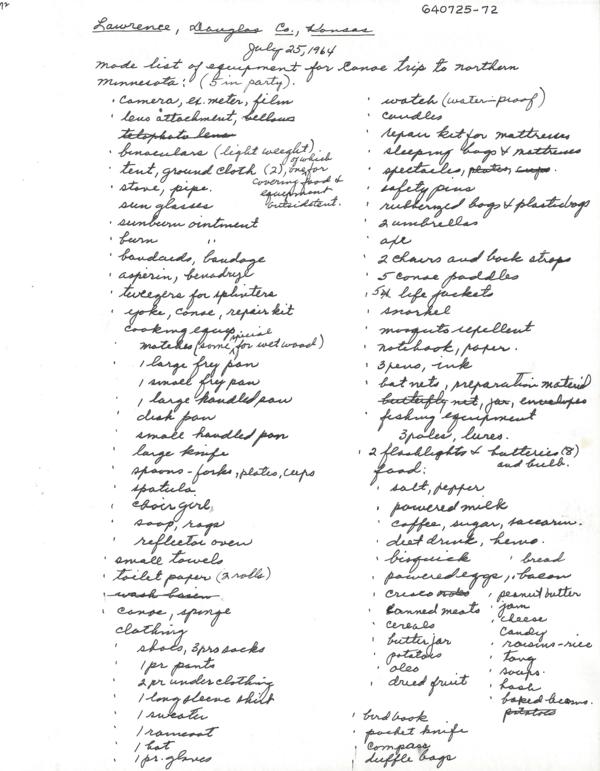 72
640725-72
Lawrence, Douglas Co., Kansas
July 25, 1964
Made list of equipment for canoe trip to northern
Minnesota: (5 in party).
camera, ex. meter, film
lens attachment, bellows
telephoto lens
binaculars (light weight)
tent, ground cloth (2), one of which for covering food & equipment outside tent.
stove, pipe.
sun glasses
sunburn ointment
burn "
bandaids, bandage
asperin, benadryl
tweezers for splinters
yoke, canoe, repair kit
cooking equip.
matches (some special for wet wood)
1 large fry pan
1 small fry pan
1 large handled pan
dish pan
small handled pan
large knife
spoons - forks, plates, cups
spatula
choir girl,
soap, rags
reflector oven
small towels
toilet paper (2 rolls)
wash basin
canoe, sponge
clothing
shoes, 3 prs socks
1 pr pants
2 pr underclothing
1 long sleeve shirt
1 sweater
1 raincoat
1 hat
1 pr. gloves
watch (water-proof)
candles
repair kit for mattresses
sleeping bags & mattresses
spectacles, plates, cups.
safety pins
rubberized bags & plastic bags
2 umbrellas
axe
2 chairs and back straps
5 canoe paddles
5 life jackets
snorkel
mosquito repellent
notebook, paper.
3 pens, ink
bat nets, preparation material
butterfly net, jar, envelopes
fishing equipment
3 poles, lures.
2 flashlights & batteries (8)
and bulb.
food:
salt, pepper
powered milk
coffee, sugar, saccarin.
diet drink, hemo.
bisquick
bread
powered eggs, bacon
crisco
peanut butter
canned meats
jam
cereals
cheese
candy
butter jar
raisins - rice
potatoes
tang
oleo
soups.
dried fruit
hash
baked beans.
potatoes
bird book
pocket knife
compass
duffle bags